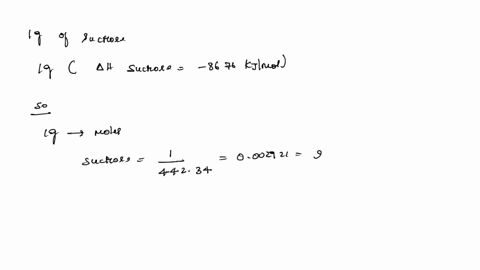 1g of sucrose
1g ( ΔH sucrose = -8676 KJ/mol)
so
1g → moles
sucrose = 1/442.34 = 0.002921 = 9